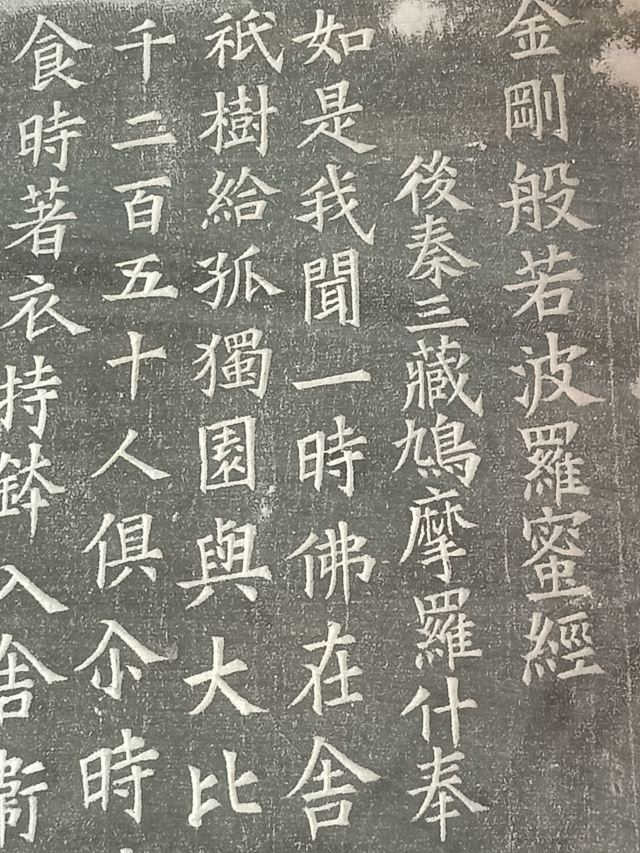 金剛般若波羅蜜經
後秦三藏鳩摩羅什奉
如是我聞一時佛在舍
祇樹給孤獨園與大比
千二百五十人俱尒時
食時著衣持鉢入舍衛